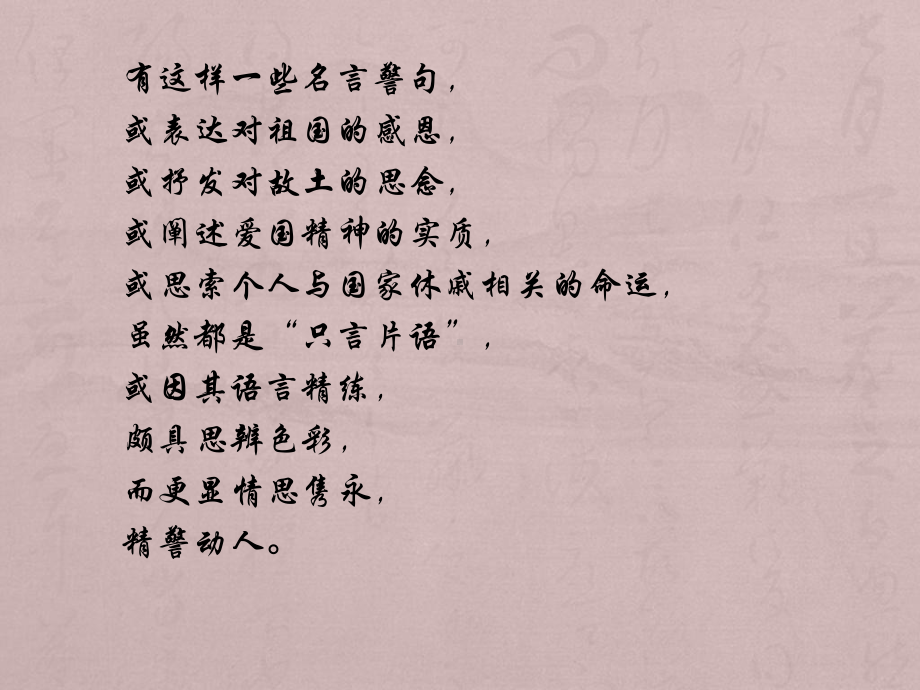 有这样一些名言警句，
或表达对祖国的感恩，
或抒发对故土的思念，
或阐述爱国精神的实质，
或思索个人与国家休戚相关的命运，
虽然都是“只言片语”，
或因其语言精练，
颇具思辨色彩，
而更显情思隽永，
精警动人。